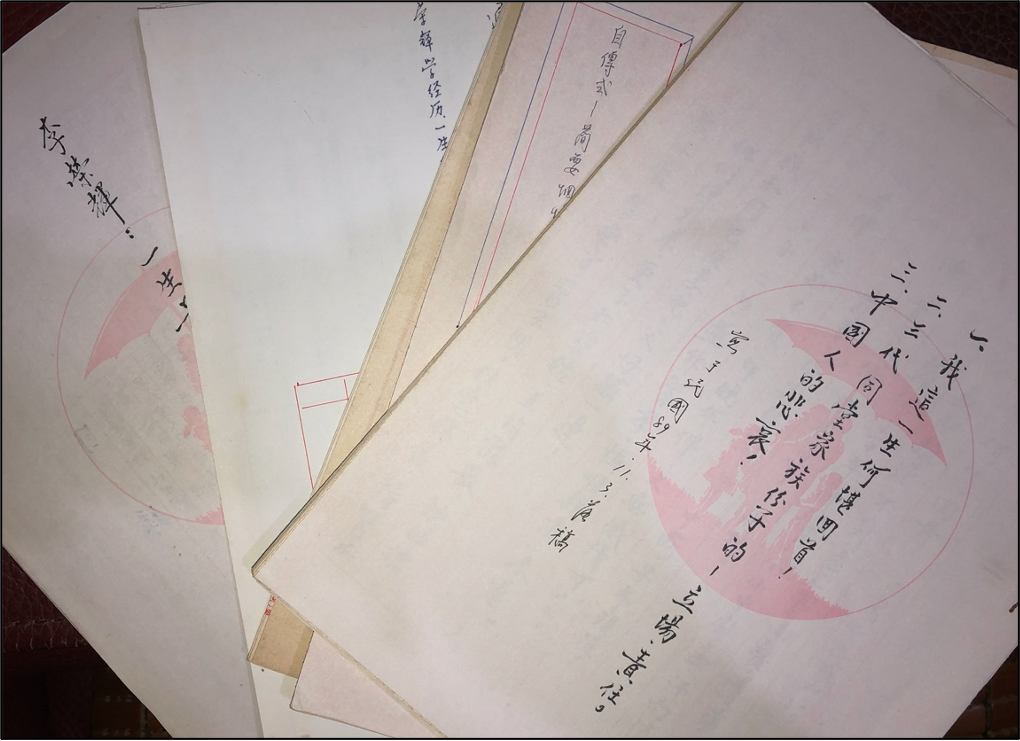 一、我這一生何堪回首！
二、三代同堂家族份子的—立場.責任。
三、中國人的悲哀！
寫于民國89年.11.3.落稿
自傳式—簡要
榮輝学经历一生
李榮輝：一生